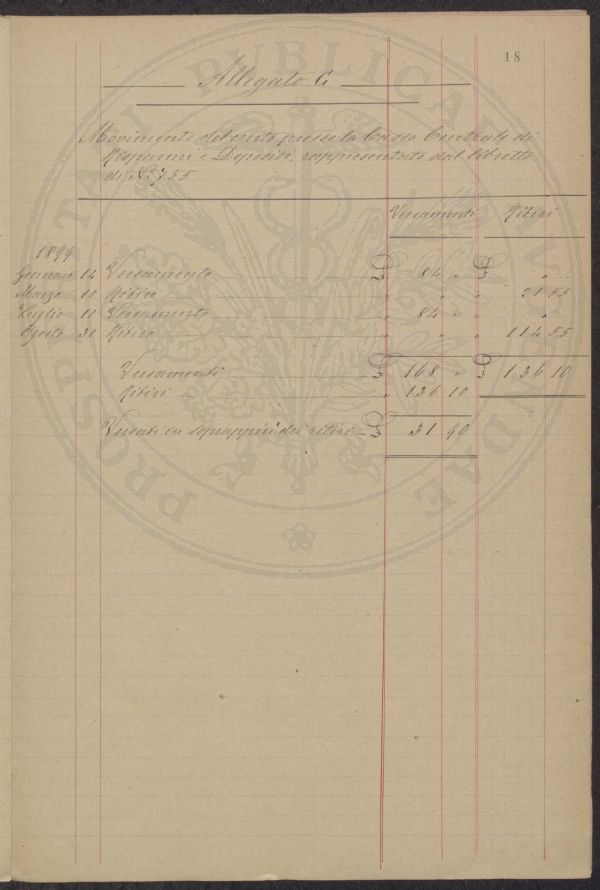 18
Allegato G
Movimento del conto presso la Cassa Centrale di
Risparmi e Depositi, rappresentato dal libretto
di N.º 755
Versamenti Ritiri
1899
Gennaio 14 Versamento £ 84 " £ "
Marzo 10 Ritiro " " " " 21 55
Luglio 11 Versamento " 84 " " "
Agosto 31 Ritiro " " " " 114 55
Versamenti £ 168 " £ 136 10
Ritiri " 136 10
Versati in soprappiù dei ritiri £ 31 90
PROSPERITATI PUBLICAE